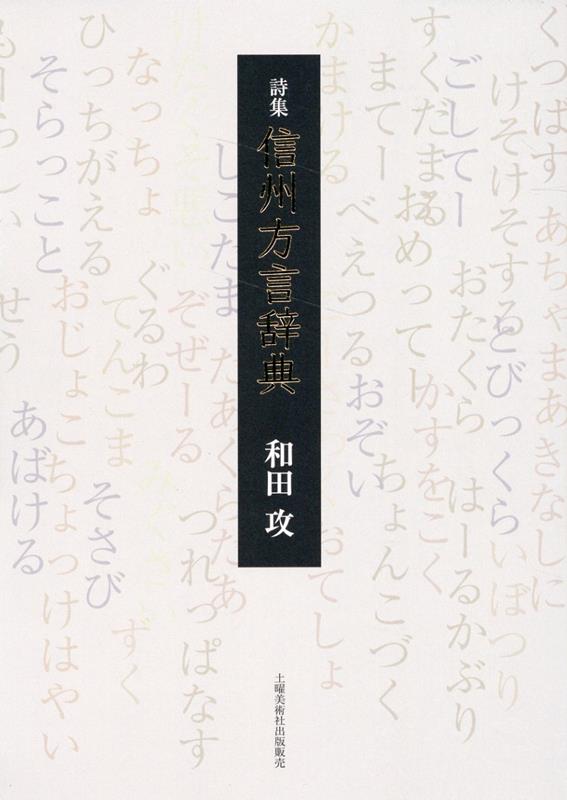 詩集
信州方言辞典
和田 攻
土曜美術社出版販売
くつばす あちゃまあきなしに
けそけそする とびっくら いぼつり
ごしてー おたくら はーるかぶり
すくだまる おめってー かすをこく
まてー べえつる おぞい ちょんこづく
かまける
おてしょ
しこたま たあくらたあ
ぞぜーる つれっぱなす
なっちょ ぐるわ
てんこま そさび ずく
ひっちがえる おじょこ ちょっけはやい
そらっこと あばける
せう